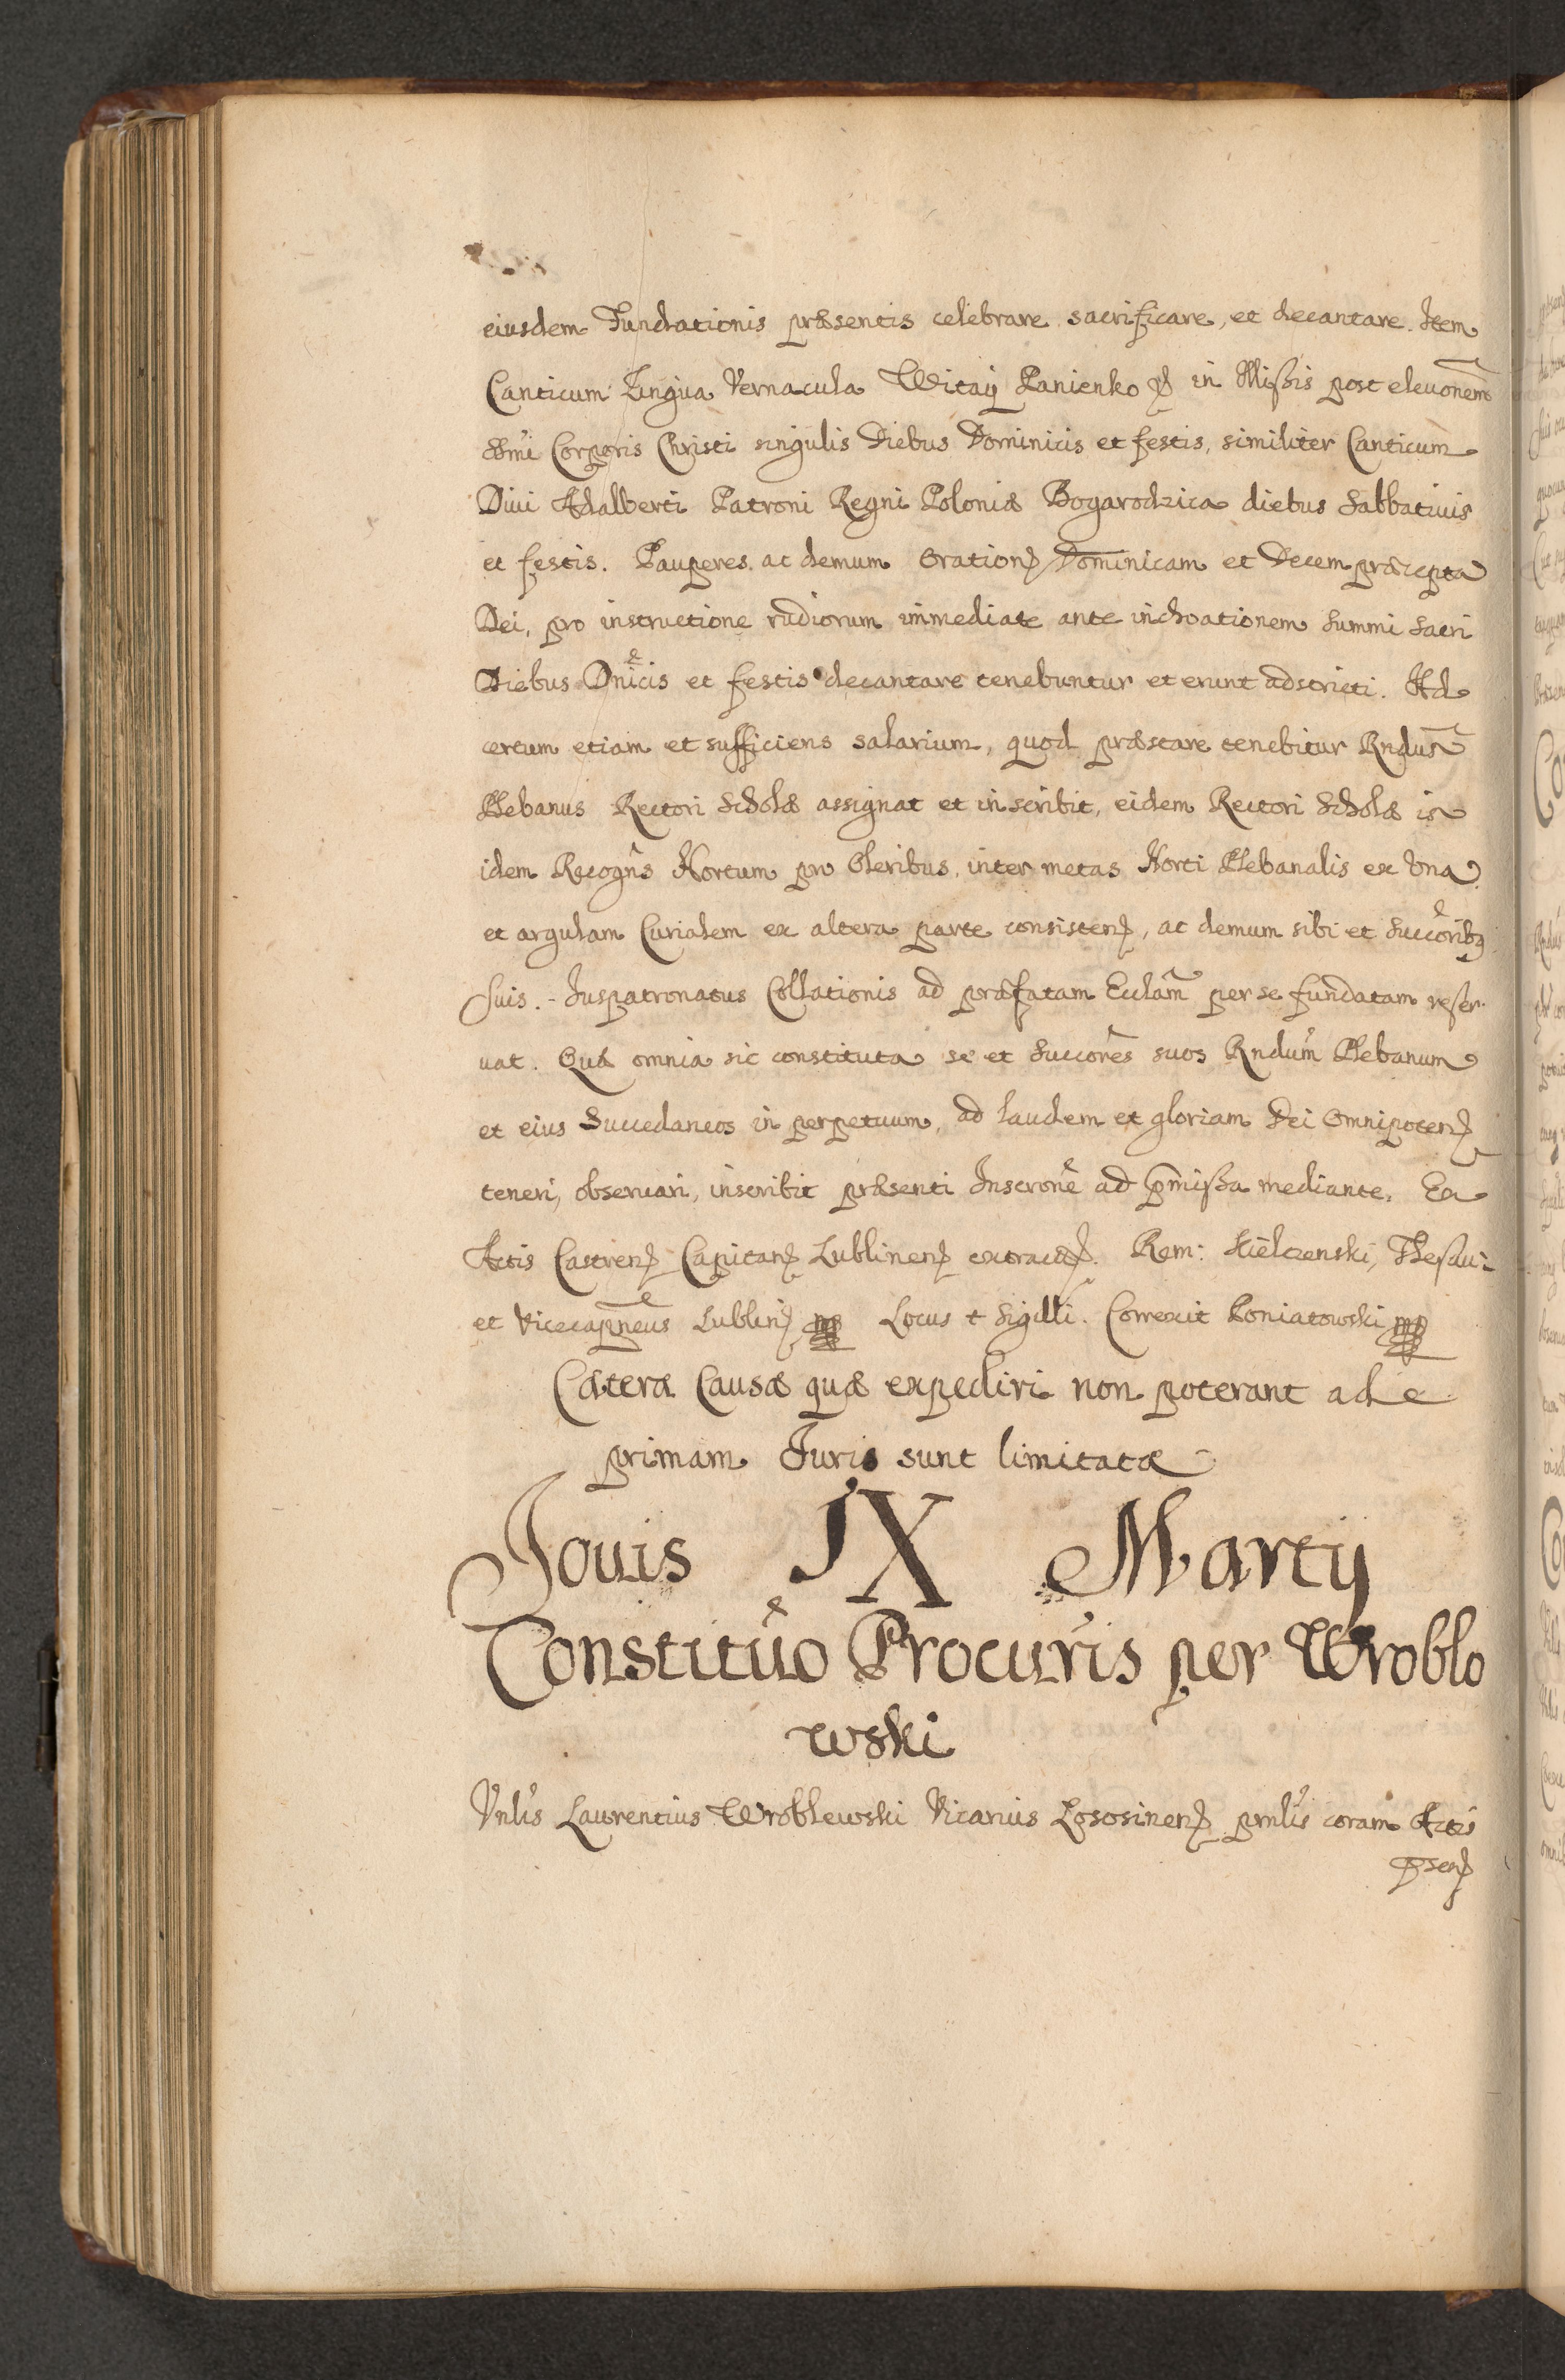 eiusdem Fundationis præsentis celebrare sacrificare, et decantare. Item
Canticum Lingua Vernacula Witay Panienko &c in Missis post eleuõnem
SSmi Corporis Christi singulis Diebus Dominicis et festis, similiter Canticum
Diui Adalberti Patroni Regni Poloniæ Bogarodzica diebus Sabbatiuis
et festis. Pauperes ac demum Orationem Dominicam et Decem præcepta
Dei, pro instructione rudiorum immediate ante inchoationem Summi Sacri
Diebus Dnicis et festis decantare tenebuntur et erunt adstricti. Ad
certum etiam et sufficiens salarium, quod præstare tenebitur Rndus
Plebanus Rectori Scholæ assignat et inscribit, eidem Rectori Scholæ is
idem Recogns Hortum pro Oleribus, inter metas Horti Plebanalis ex Vna
et argulam Curialem ex altera parte consisten, ac demum sibi et Succoribq
Suis. - Iuspatronatus Collationis ad præfatam Ecclam per se fundatam reser
uat. Quæ omnia sic constituta se et Succores suos Rndum Plebanum
et eius Succedaneos in perpetuum, ad laudem et gloriam Dei Omnipoten
teneri, obseruari, inscribit præsenti Inscrone ad pmissa mediante. Ex
Actis Castren Capitan Lublinen extract. Rem: Kielczenski, Thesau:
et Vicecapneus Lublin mp Locus + Sigilli. Correxit Poniatowski mp
Cæteræ Causæ quæ expediri non poterant ad
primam Juris sunt limitatæ
Jouis IX Martij
Constitũo Procuris per Wroblo
wski
Vnlis Laurentius Wroblewski Vicarius Lososinen prnlis coram Actis
psen